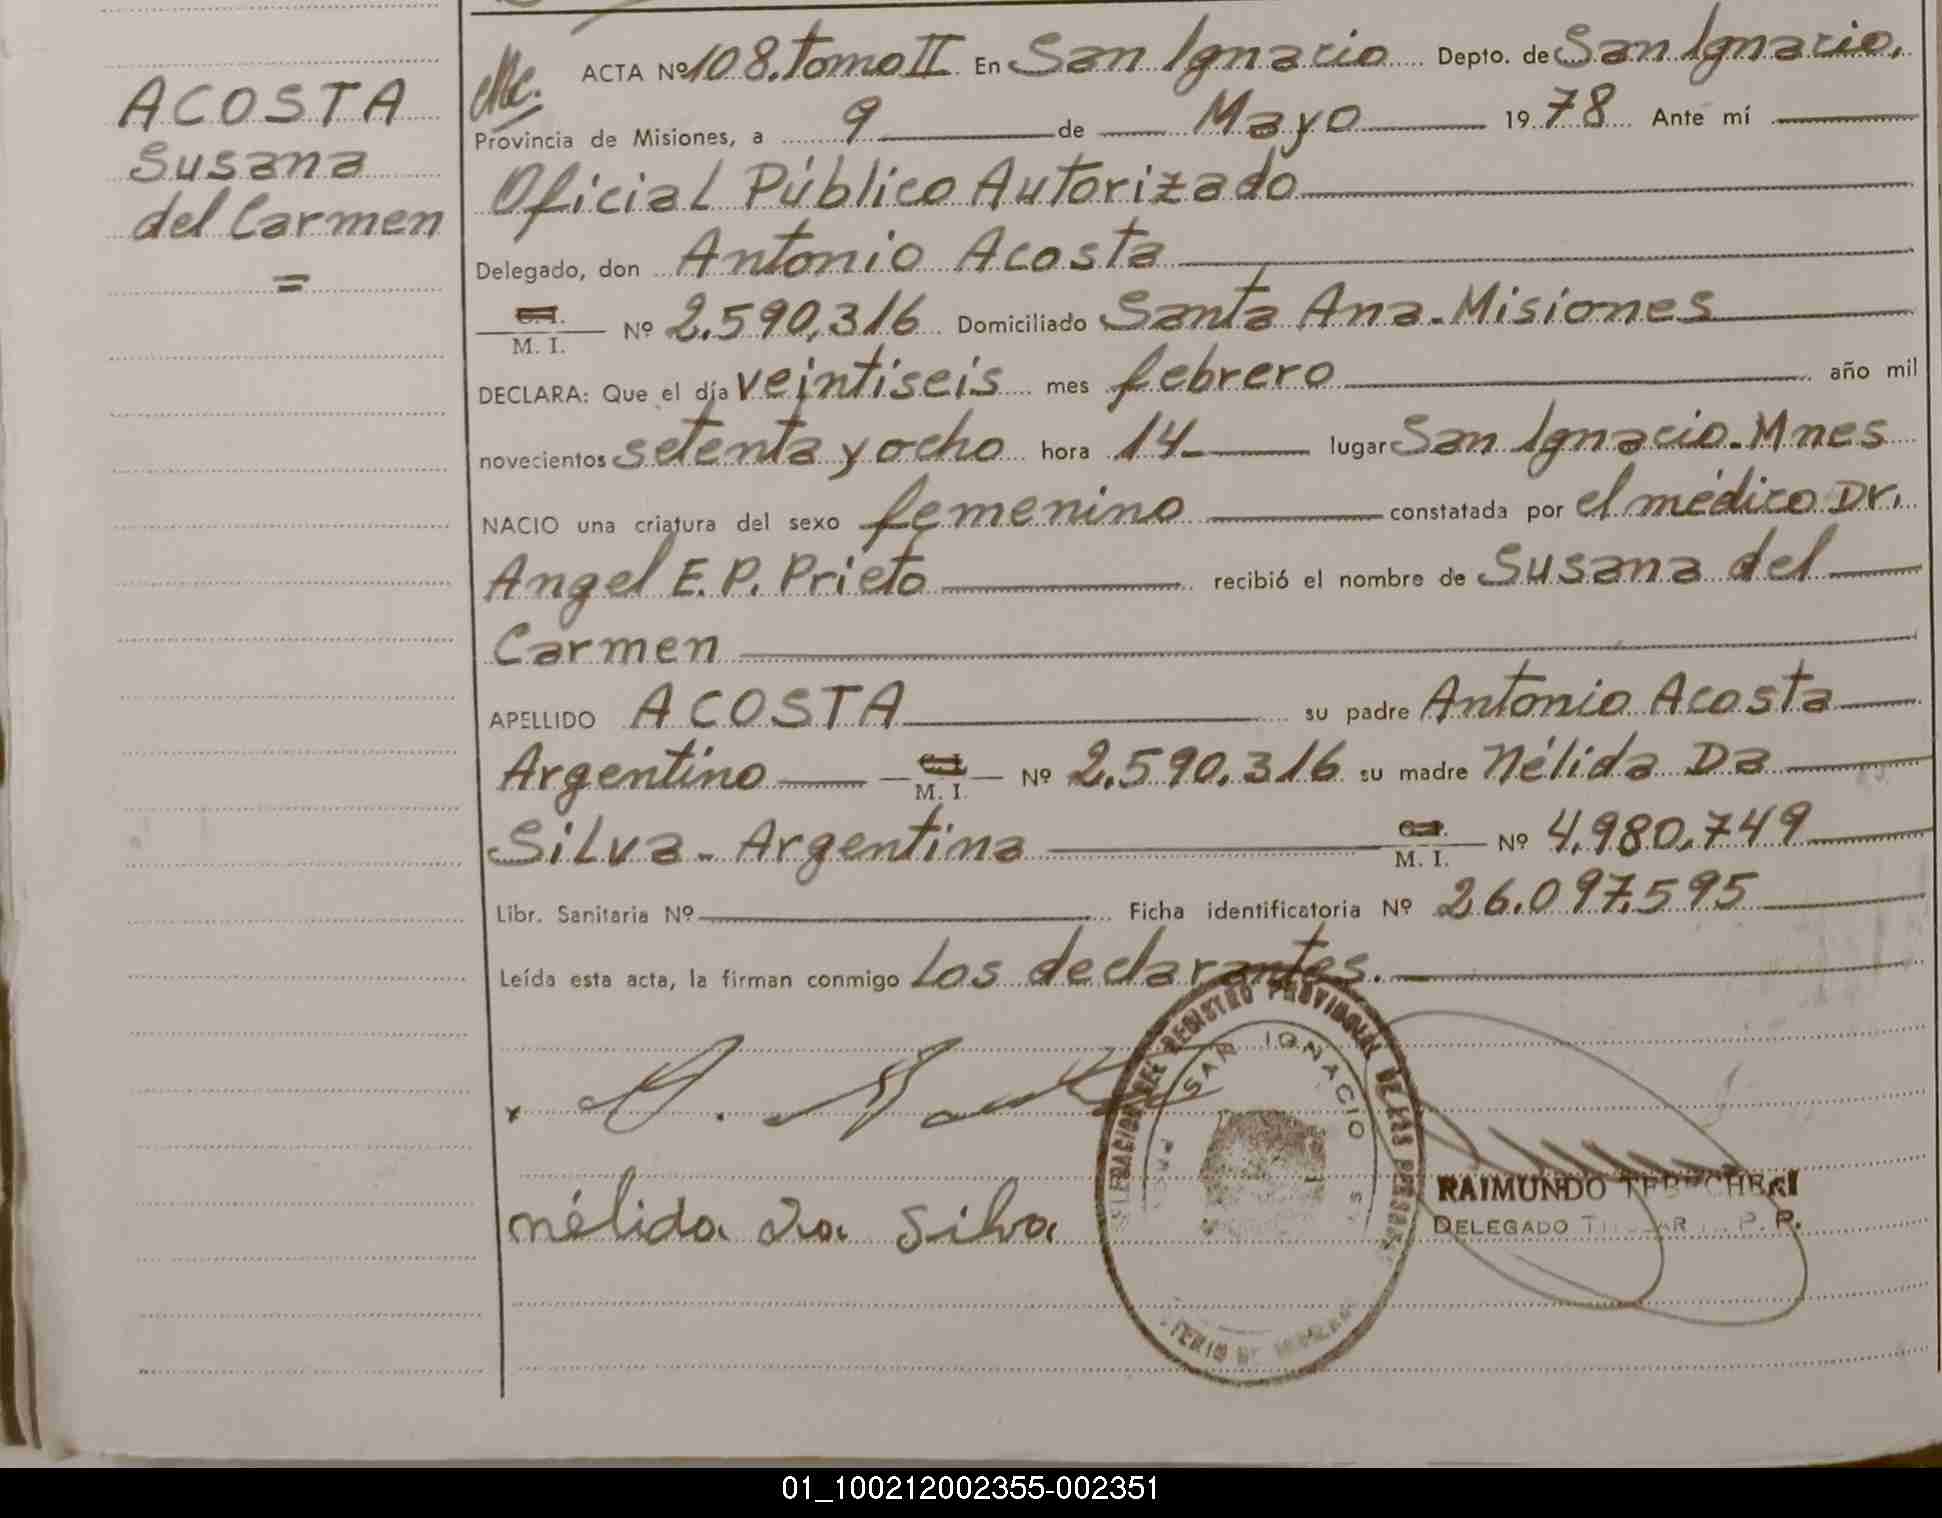 ACOSTA
Susana
del Carmen
=
ACTA Nº 108. Tomo II En San Ignacio Depto. de San Ignacio.
Provincia de Misiones, a 9 de Mayo 1978 Ante mí
Oficial Público Autorizado
Delegado, don Antonio Acosta
M. I. Nº 2.590.316 Domiciliado Santa Ana-Misiones
DECLARA: Que el día veintiseis mes febrero año mil
novecientos setenta y ocho hora 14- lugar San Ignacio-Mnes
NACIO una criatura del sexo femenino constatada por el médico Dr.
Angel E.P. Prieto recibió el nombre de Susana del
Carmen
APELLIDO ACOSTA su padre Antonio Acosta
Argentino C.I. M. I. Nº 2.590.316 su madre Nélida Da
Silva- Argentina C.I. M. I. Nº 4.980.749
Libr. Sanitaria Nº Ficha identificatoria Nº 26.097.595
Leída esta acta, la firman conmigo los declarantes.
REGISTRO PROVINCIAL DE LAS
SAN IGNACIO
nélida da silva
RAIMUNDO
DELEGADO
01_100212002355-002351